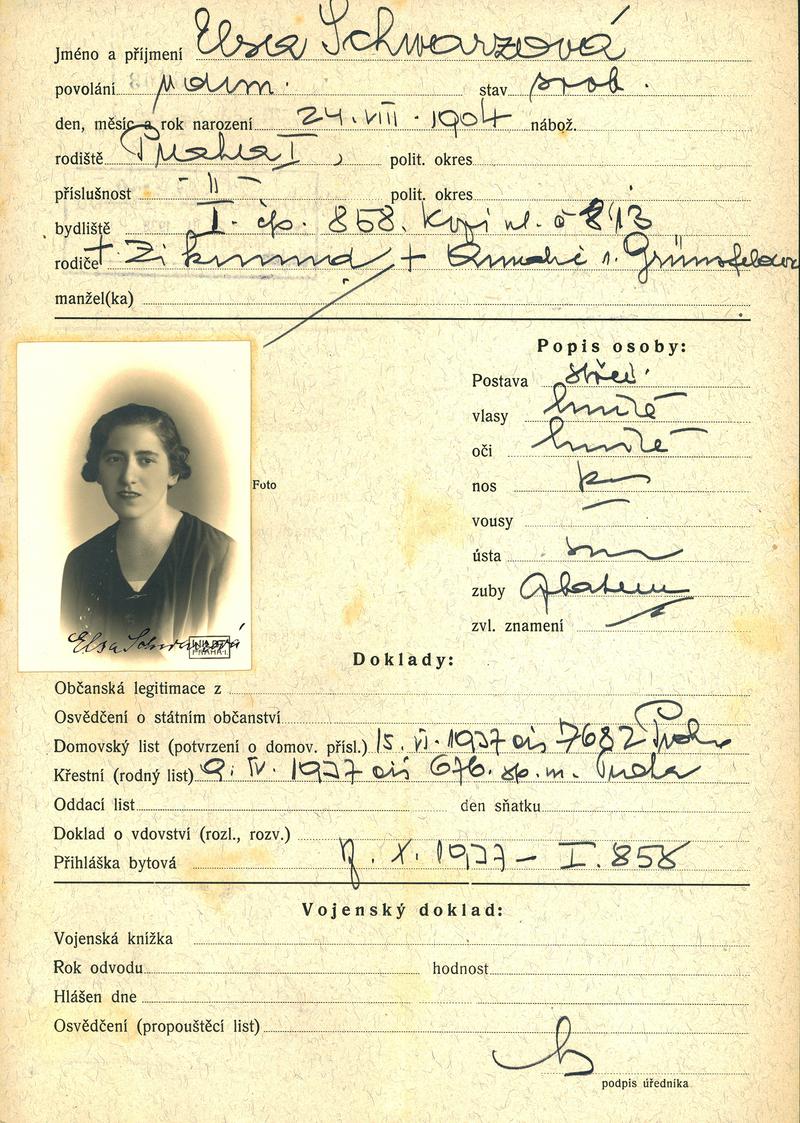 Jméno a příjmení Elsa Schwarzová
povolání stav svob.
den, měsíc a rok narození 24. VIII. 1904 nábož.
rodiště Praha I, polit. okres
příslušnost - II - polit. okres
bydliště I. čp. 858. č 13
rodiče + Zikmund + n. Grünsfeldová
manžel(ka)
Popis osoby:
Postava střed.
vlasy hnědé
oči hnědé
nos
vousy —
ústa
zuby
zvl. znamení
Foto
Elsa Schwarzová
Doklady:
Občanská legitimace z
Osvědčení o státním občanství
Domovský list (potvrzení o domov. přísl.) 15. VI. 1937 čís 7682 Praha
Křestní (rodný list) 9. IV. 1937 čís 676. Praha
Oddací list den sňatku
Doklad o vdovství (rozl., rozv.)
Přihláška bytová X. 1937 — I. 858
Vojenský doklad:
Vojenská knížka
Rok odvodu hodnost
Hlášen dne
Osvědčení (propouštěcí list)
podpis úředníka